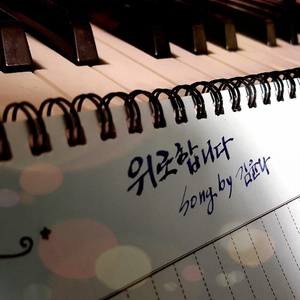 위로합니다
song by 김윤나